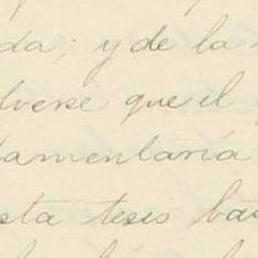 da; y de la
lverse que el
lamentaria
sta tesis bas